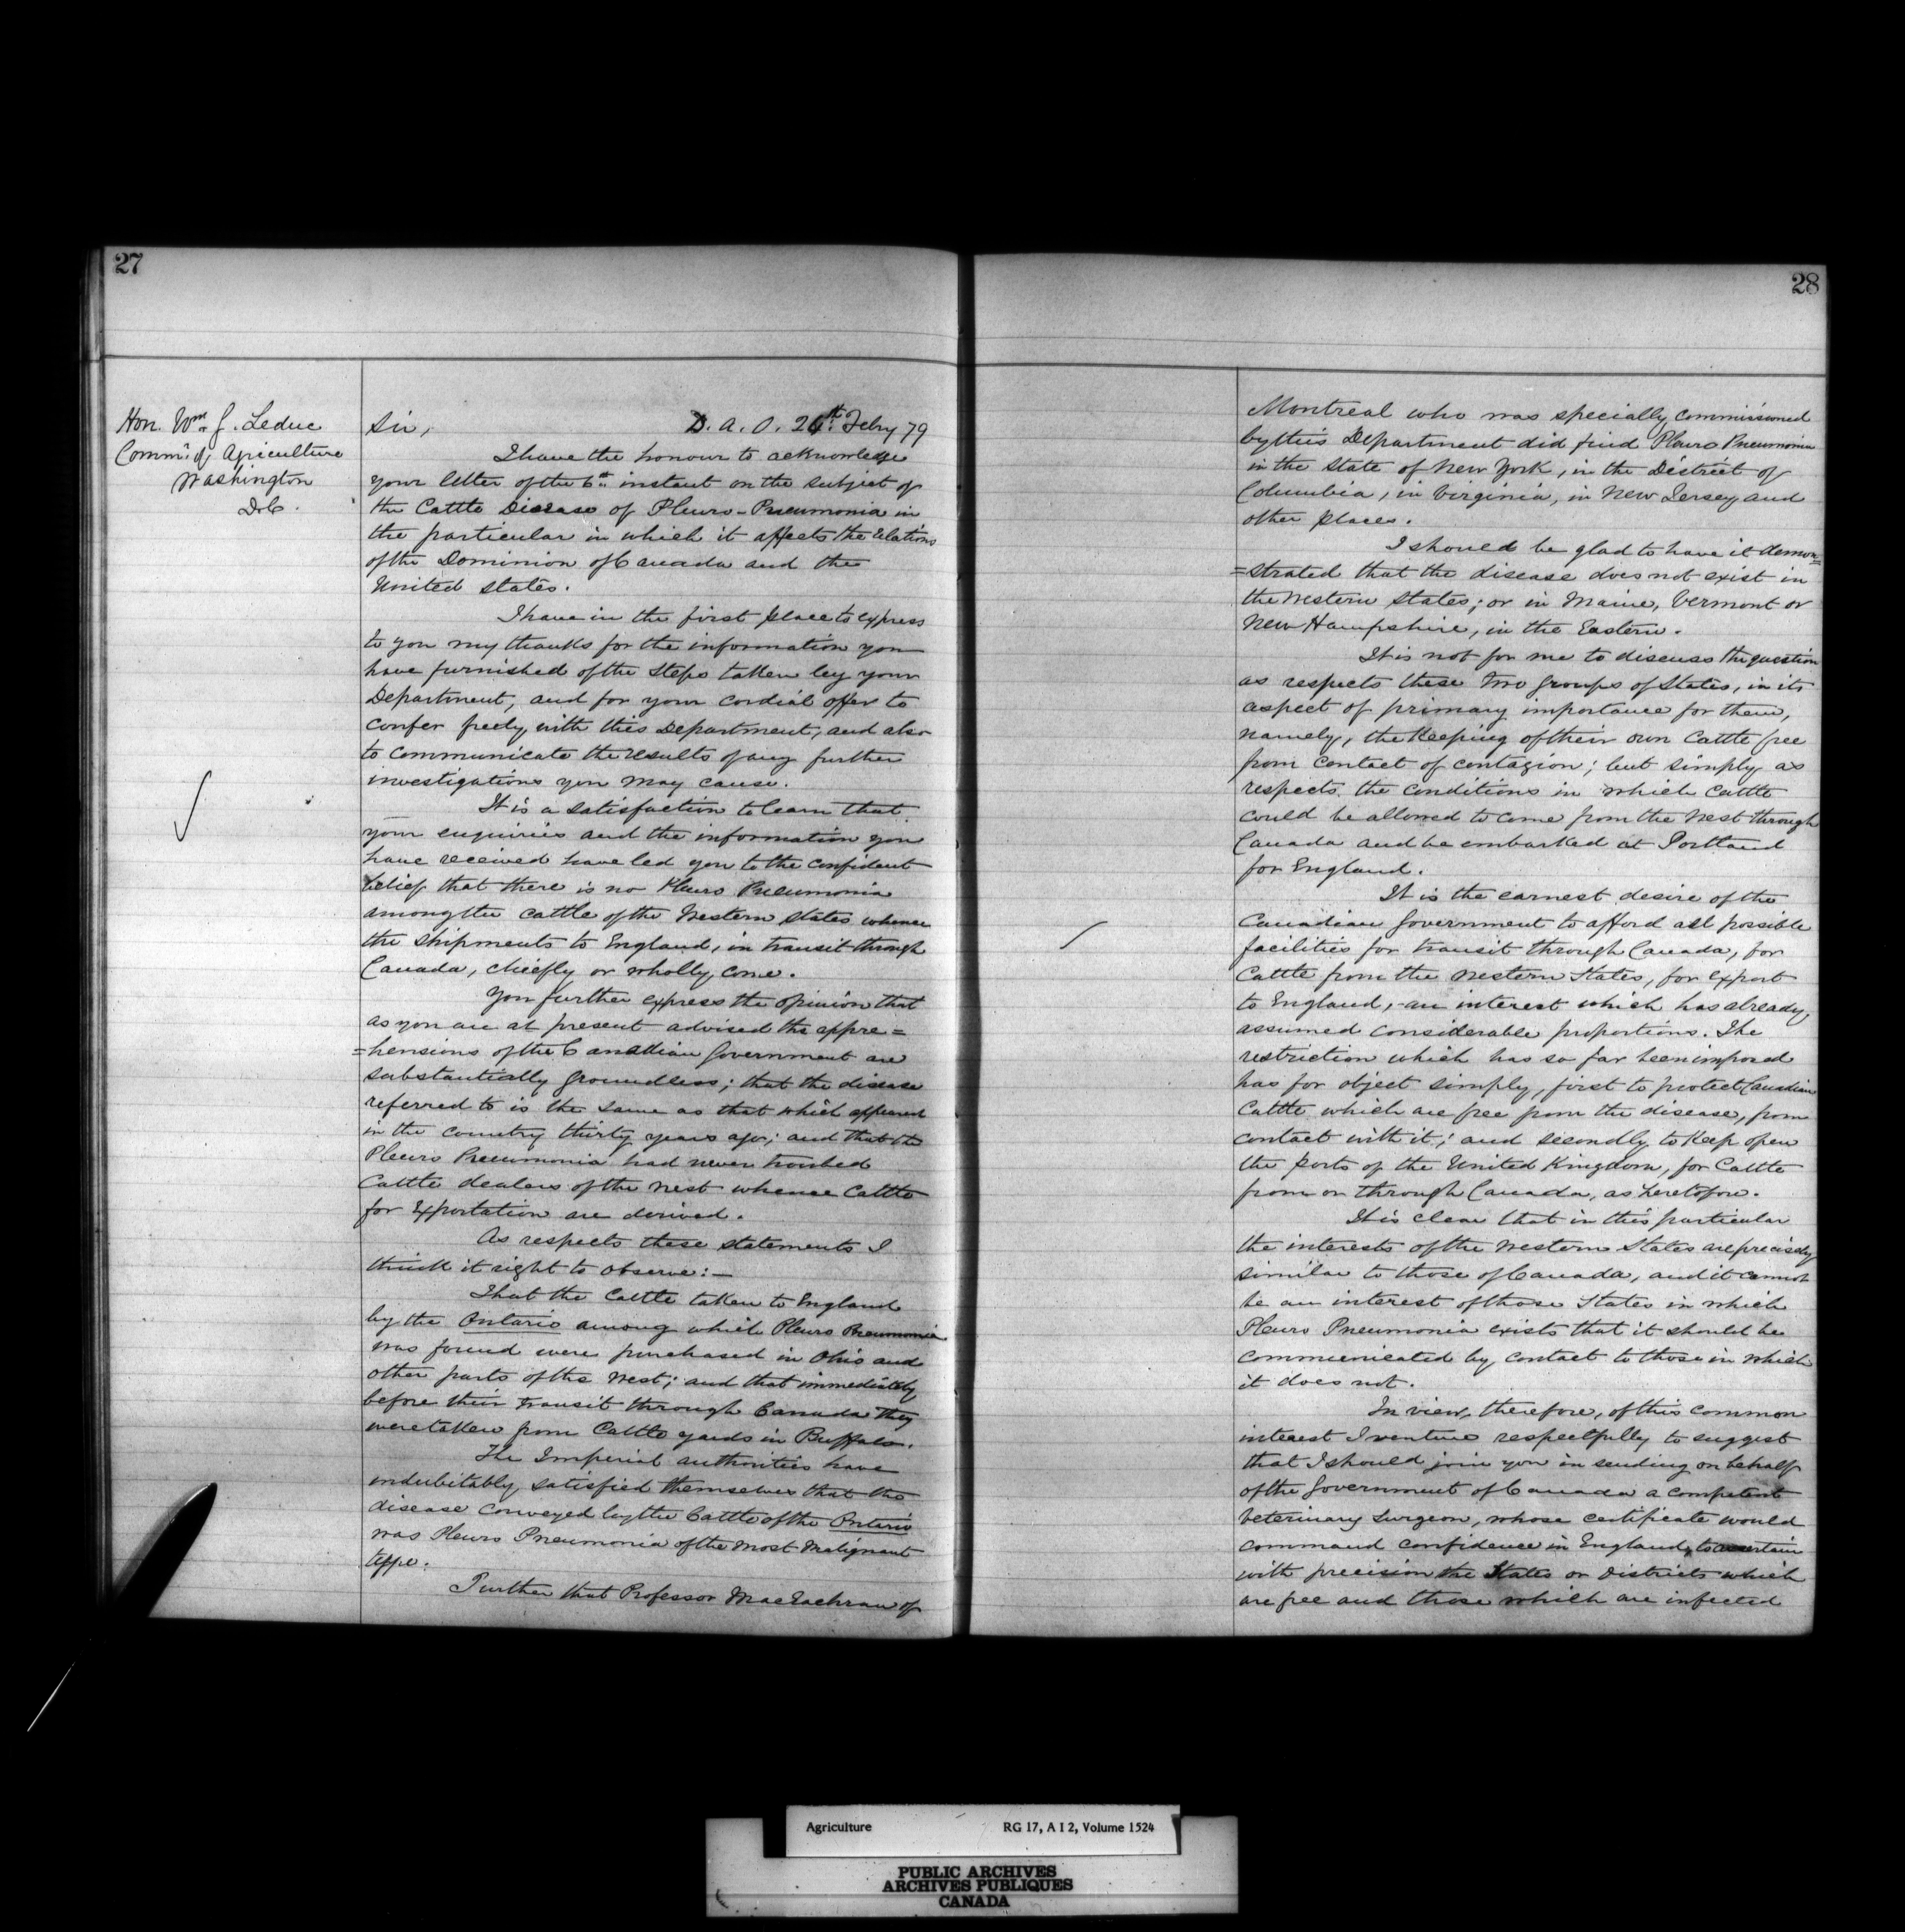 27
Hon. Wm. J. Leduc
Commr. of Agriculture
Washington
D.C.
Sir, D. A. O. 26th Febry 79
I have the honour to acknowledge
your letter of the 6th instant on the subject of
the Cattle Disease of Pleuro-Pneumonia in
the particular in which it affects the relations
of the Dominion of Canada and the
United States.
I have in the first place to express
to you my thanks for the information you
have furnished of the steps taken by your
Department, and for your cordial offer to
confer freely with this Department, and also
to communicate the results of any further
investigations you may cause.
It is a satisfaction to learn that
your enquiries and the information you
have received have led you to the confident
belief that there is no Pleuro Pneumonia
among the cattle of the Western States whence
the shipments to England, in transit through
Canada, chiefly or wholly, come.
You further express the opinion that
as you are at present advised the appre=
=hensions of the Canadian Government are
substantially groundless; that the disease
referred to is the same as that which appeared
in the country thirty years ago; and that the
Pleuro Pneumonia had never troubled
Cattle dealers of the West whence Cattle
for Exportation are derived.
As respects these statements I
think it right to observe:—
That the Cattle taken to England
by the Ontario among which Pleuro Pneumonia
was found were purchased in Ohio and
other parts of the West; and that immediately
before their transit through Canada they
were taken from Cattle yards in Buffalo.
The Imperial authorities have
indubitably satisfied themselves that the
disease conveyed by the Cattle of the Ontario
was Pleuro Pneumonia of the most Malignant
type.
Further that Professor MacEachran of
28
Montreal who was specially commissioned
by this Department did find Pleuro Pneumonia
in the State of New York, in the District of
Columbia, in Virginia, in New Jersey and
other places.
I should be glad to have it demon=
=strated that the disease does not exist in
the Western States; or in Maine, Vermont or
New Hampshire, in the Eastern.
It is not for me to discuss the question
as respects these two groups of States, in its
aspect of primary importance for them,
namely, the Keeping of their own Cattle free
from contact of contagion; but simply as
respects the conditions in which Cattle
could be allowed to come from the West through
Canada and be embarked at Portland
for England.
It is the earnest desire of the
Canadian Government to afford all possible
facilities for transit through Canada, for
Cattle from the Western States, for export
to England,- an interest which has already
assumed considerable proportions. The
restriction which has so far been imposed
has for object simply, first to protect Canadian
Cattle which are free from the disease, from
contact with it; and secondly to Keep open
the ports of the United Kingdom, for Cattle
from or through Canada, as heretofore.
It is clear that in this particular
the interests of the Western States are precisely
similar to those of Canada, and it cannot
be an interest of those States in which
Pleuro Pneumonia exists that it should be
communicated by contact to those in which
it does not.
In view, therefore, of this common
interest I venture respectfully to suggest
that I should join you in sending on behalf
of the Government of Canada a competent
Veterinary Surgeon, whose certificate would
command confidence in England, to ascertain
with precision the States or Districts which
are free and those which are infected
Agriculture RG 17, A I 2, Volume 1524
PUBLIC ARCHIVES
ARCHIVES PUBLIQUES
CANADA